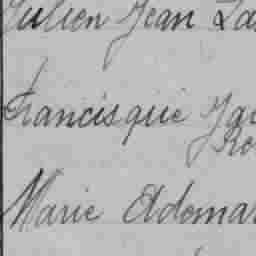 Julien Jean La
Francisque Ja
Ro
Marie Ademar